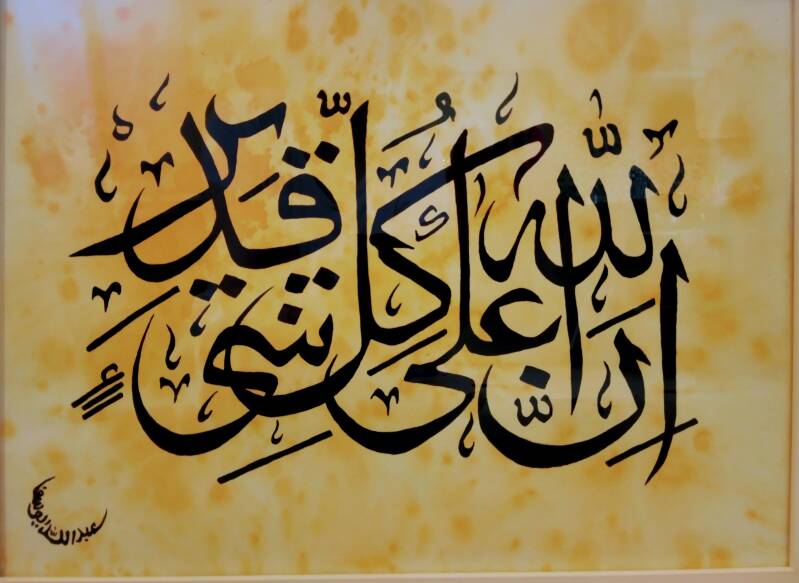 إِنَّ اللّٰهَ عَلَى كُلِّ شَيْءٍ قَدِيرٌ
عبدالله